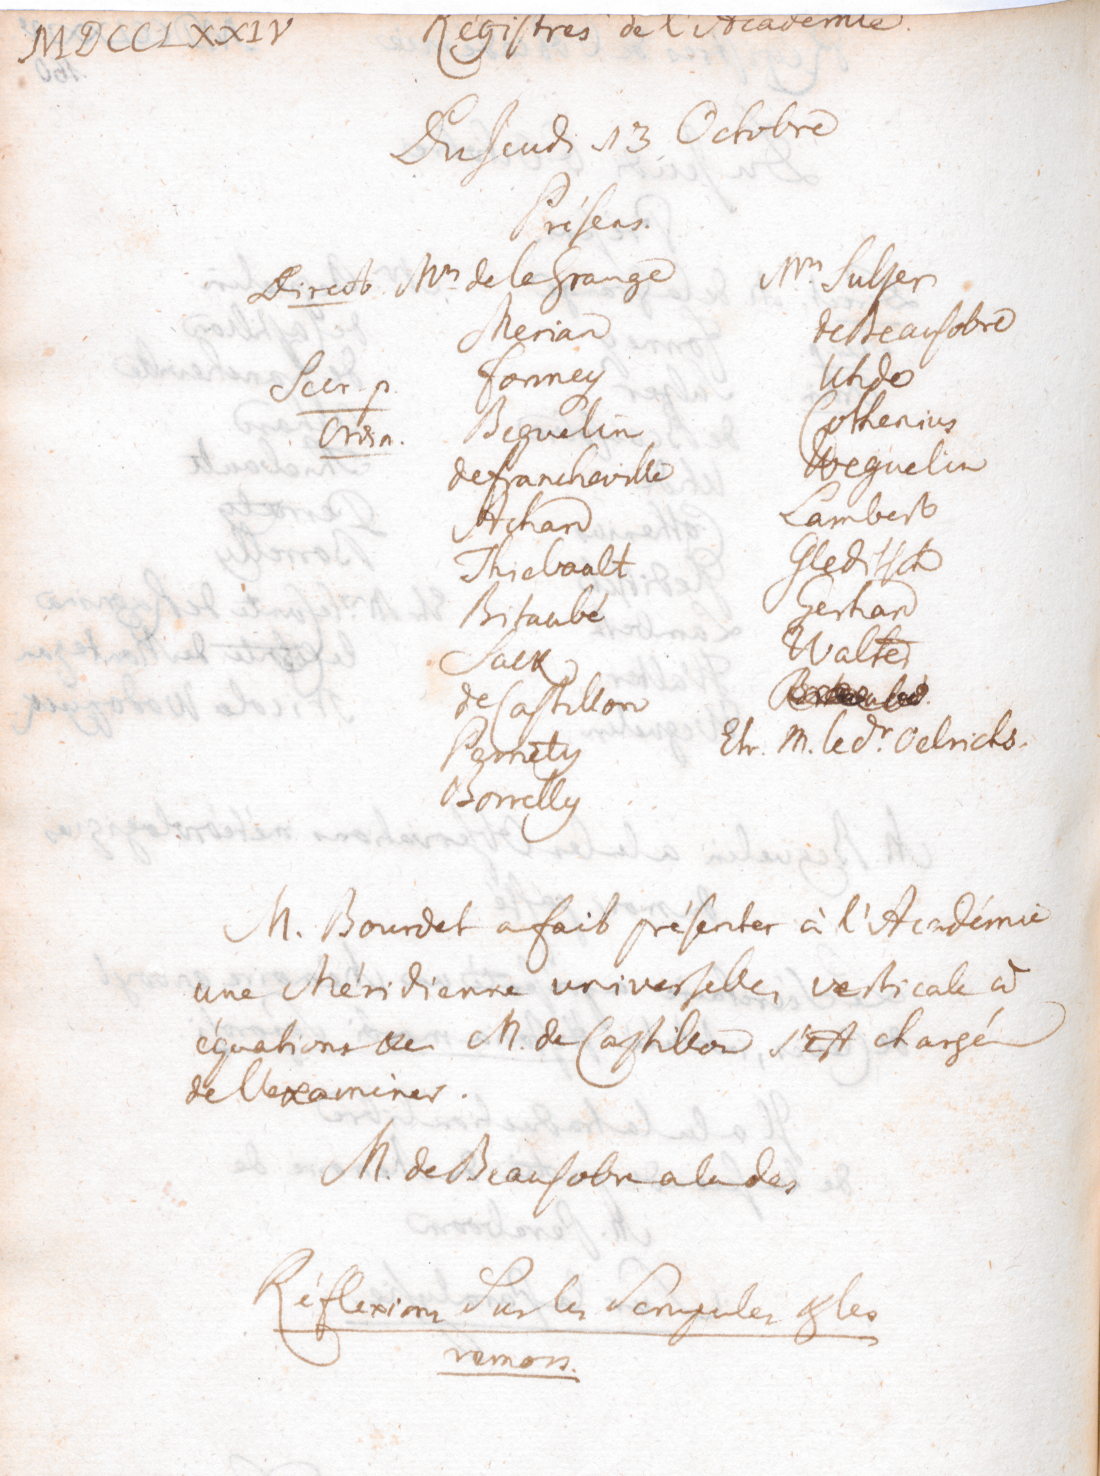 MDCCLXXIV
Régistres de l'Académie.
Du Jeudi 13 Octobre
Présens.
Direct. Mrs de la Grange
Merian
Secr. p. Formey
Ordin. Beguelin
de Francheville
Achard
Thiebault
Bitaubé
Sack
de Castillon
Pernety
Borrelly
Mrs Sulzer
de Beausobre
Uhde
Cothenius
Weguelin
Lambert
Gleditsch
Gerhard
Walter
Etr. M. le Dr. Oelrichs.
M. Bourdet a fait présenter à l'Académie
une Méridienne universelle, verticale à
équations & M. de Castillon s'est chargé
de l'examiner.
M. de Beausobre a lu des
Réflexions Sur les Scrupules & les
remors.